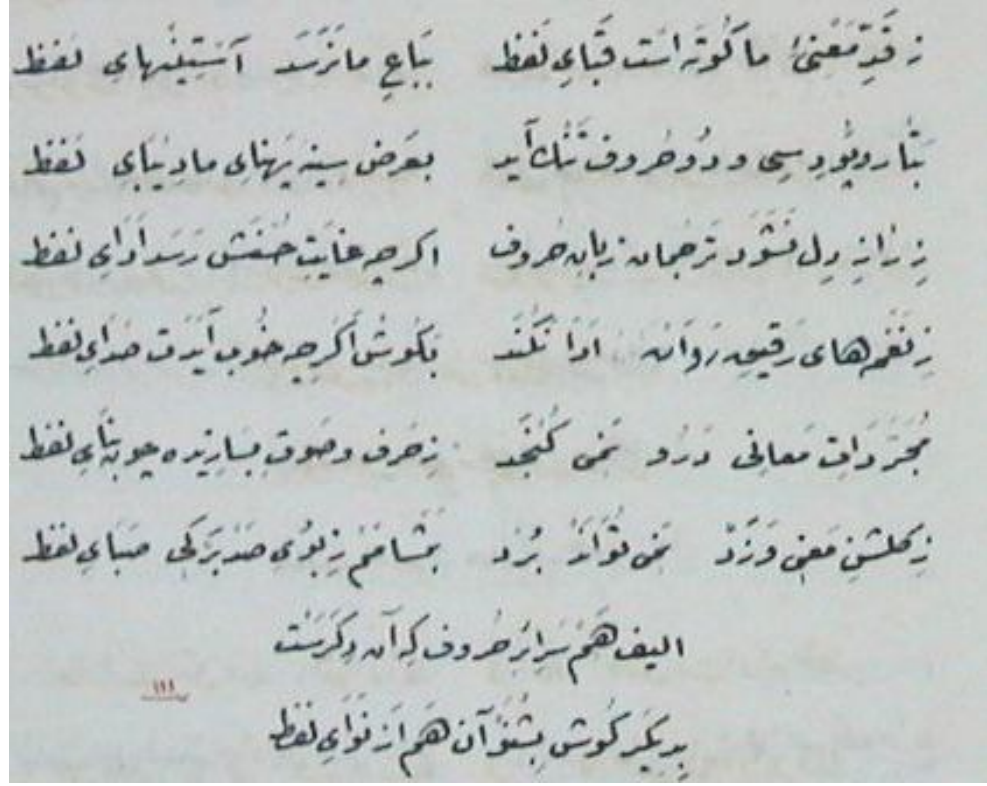 ز قدِّ مَعْنیٔ ما کُوتَه است قَبایِ لَفظ بَباعِ ما نَرَسَد آستینهایِ لَفظ
بتار وپُودِ سِی و دُو حُروف تَنْك آید بعَرضِ سِینه پَهنایِ ما دِیبایِ لَفظ
زِ رازِ دِل نَشَوَد تَرجُمان زبانِ حُروف اکرچه غایتِ حُسْنَش رَسَد اَدایِ لَفظ
زِ نَغمهای رَقیقِ رَوان اَدا نَکُنَد بَکُوش اَکَرچه خُوب آیَدَت صَدایِ لَفظ
مُجَرَّداتِ مَعانی دَرُو نَمی کُنْجَد زِ حَرف وصَوت بسازیده چو بنایِ لَفظ
زِ کلشنِ مَعنی وَزَدْ نَمی تَوانَد بُرْد بَمَشامَم زِ بُویِ صَد بَرکی صَبایِ لَفظ
الیف هَم سَرایَد حُروف کِه آن دِکَرَسْت
١١١
بِدیکَر کُوش بِشْنَوْ آن هَم اَز نَوایِ لَفظ